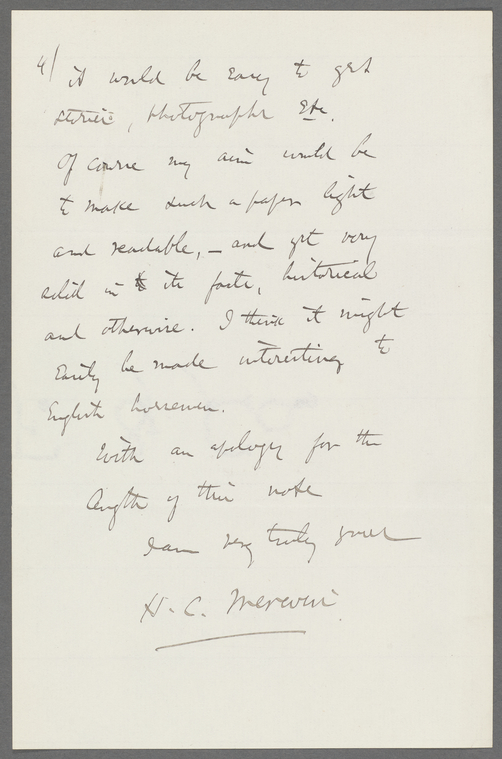 4/ it would be easy to get
stories, photographs etc.
Of course my aim would be
to make such a paper light
and readable, – and yet very
solid in its facts, historical
and otherwise. I think it might
easily be made interesting to
English horsemen.
With an apology for the
length of this note
I am very truly yours
H. C. Merwin